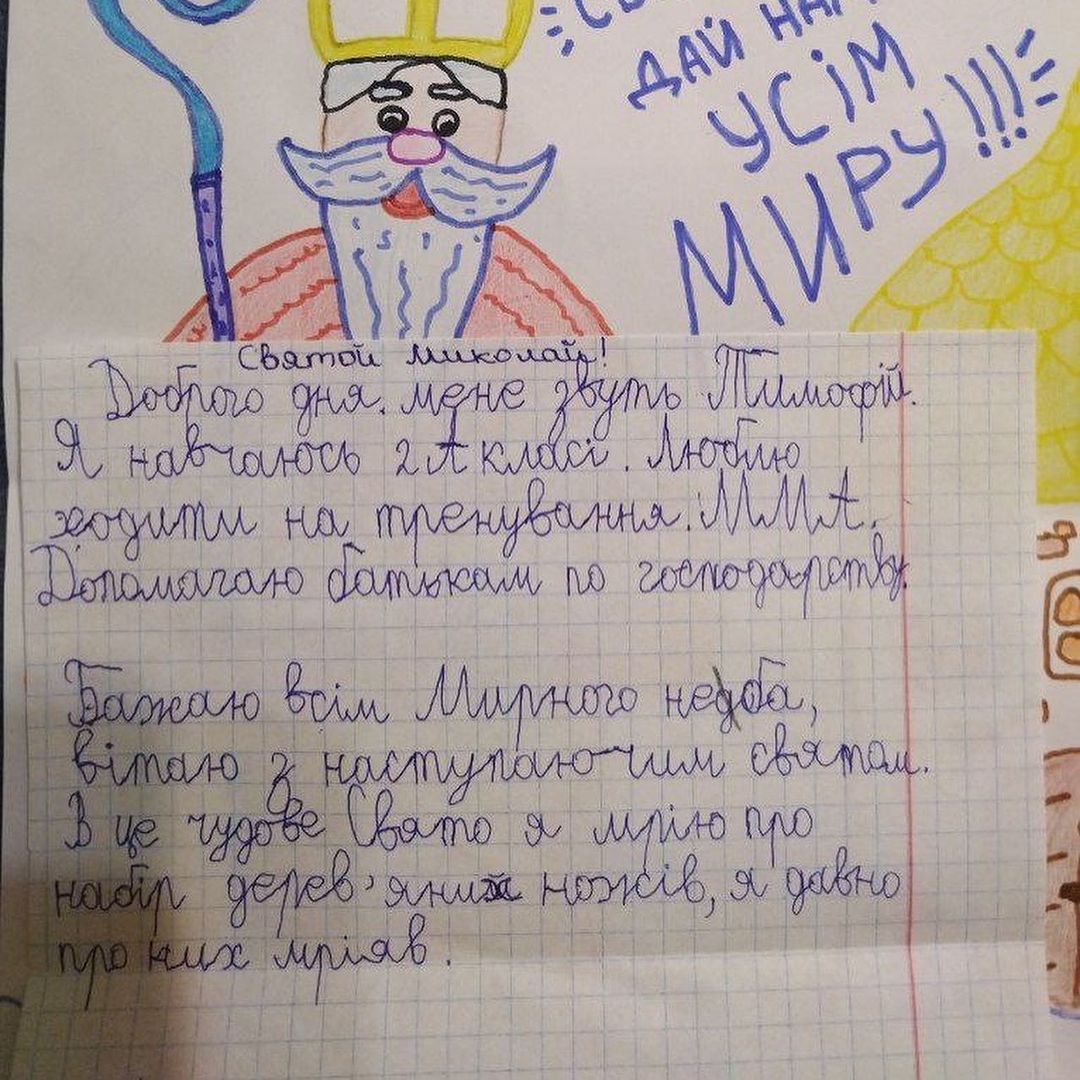 ДАЙ НАМ
УСІМ
МИРУ!!!
Святой Миколай!
Доброго дня. мене звуть Тимофій.
Я навчаюсь 2 А класі. Люблю
ходити на тренування. ММА.
Допомагаю батькам по господарству.
Бажаю всім Мирного неба,
вітаю з наступаючим святом.
В це чудове Свято я мрію про
набір дерев'яних ножів, я давно
про них мріяв.